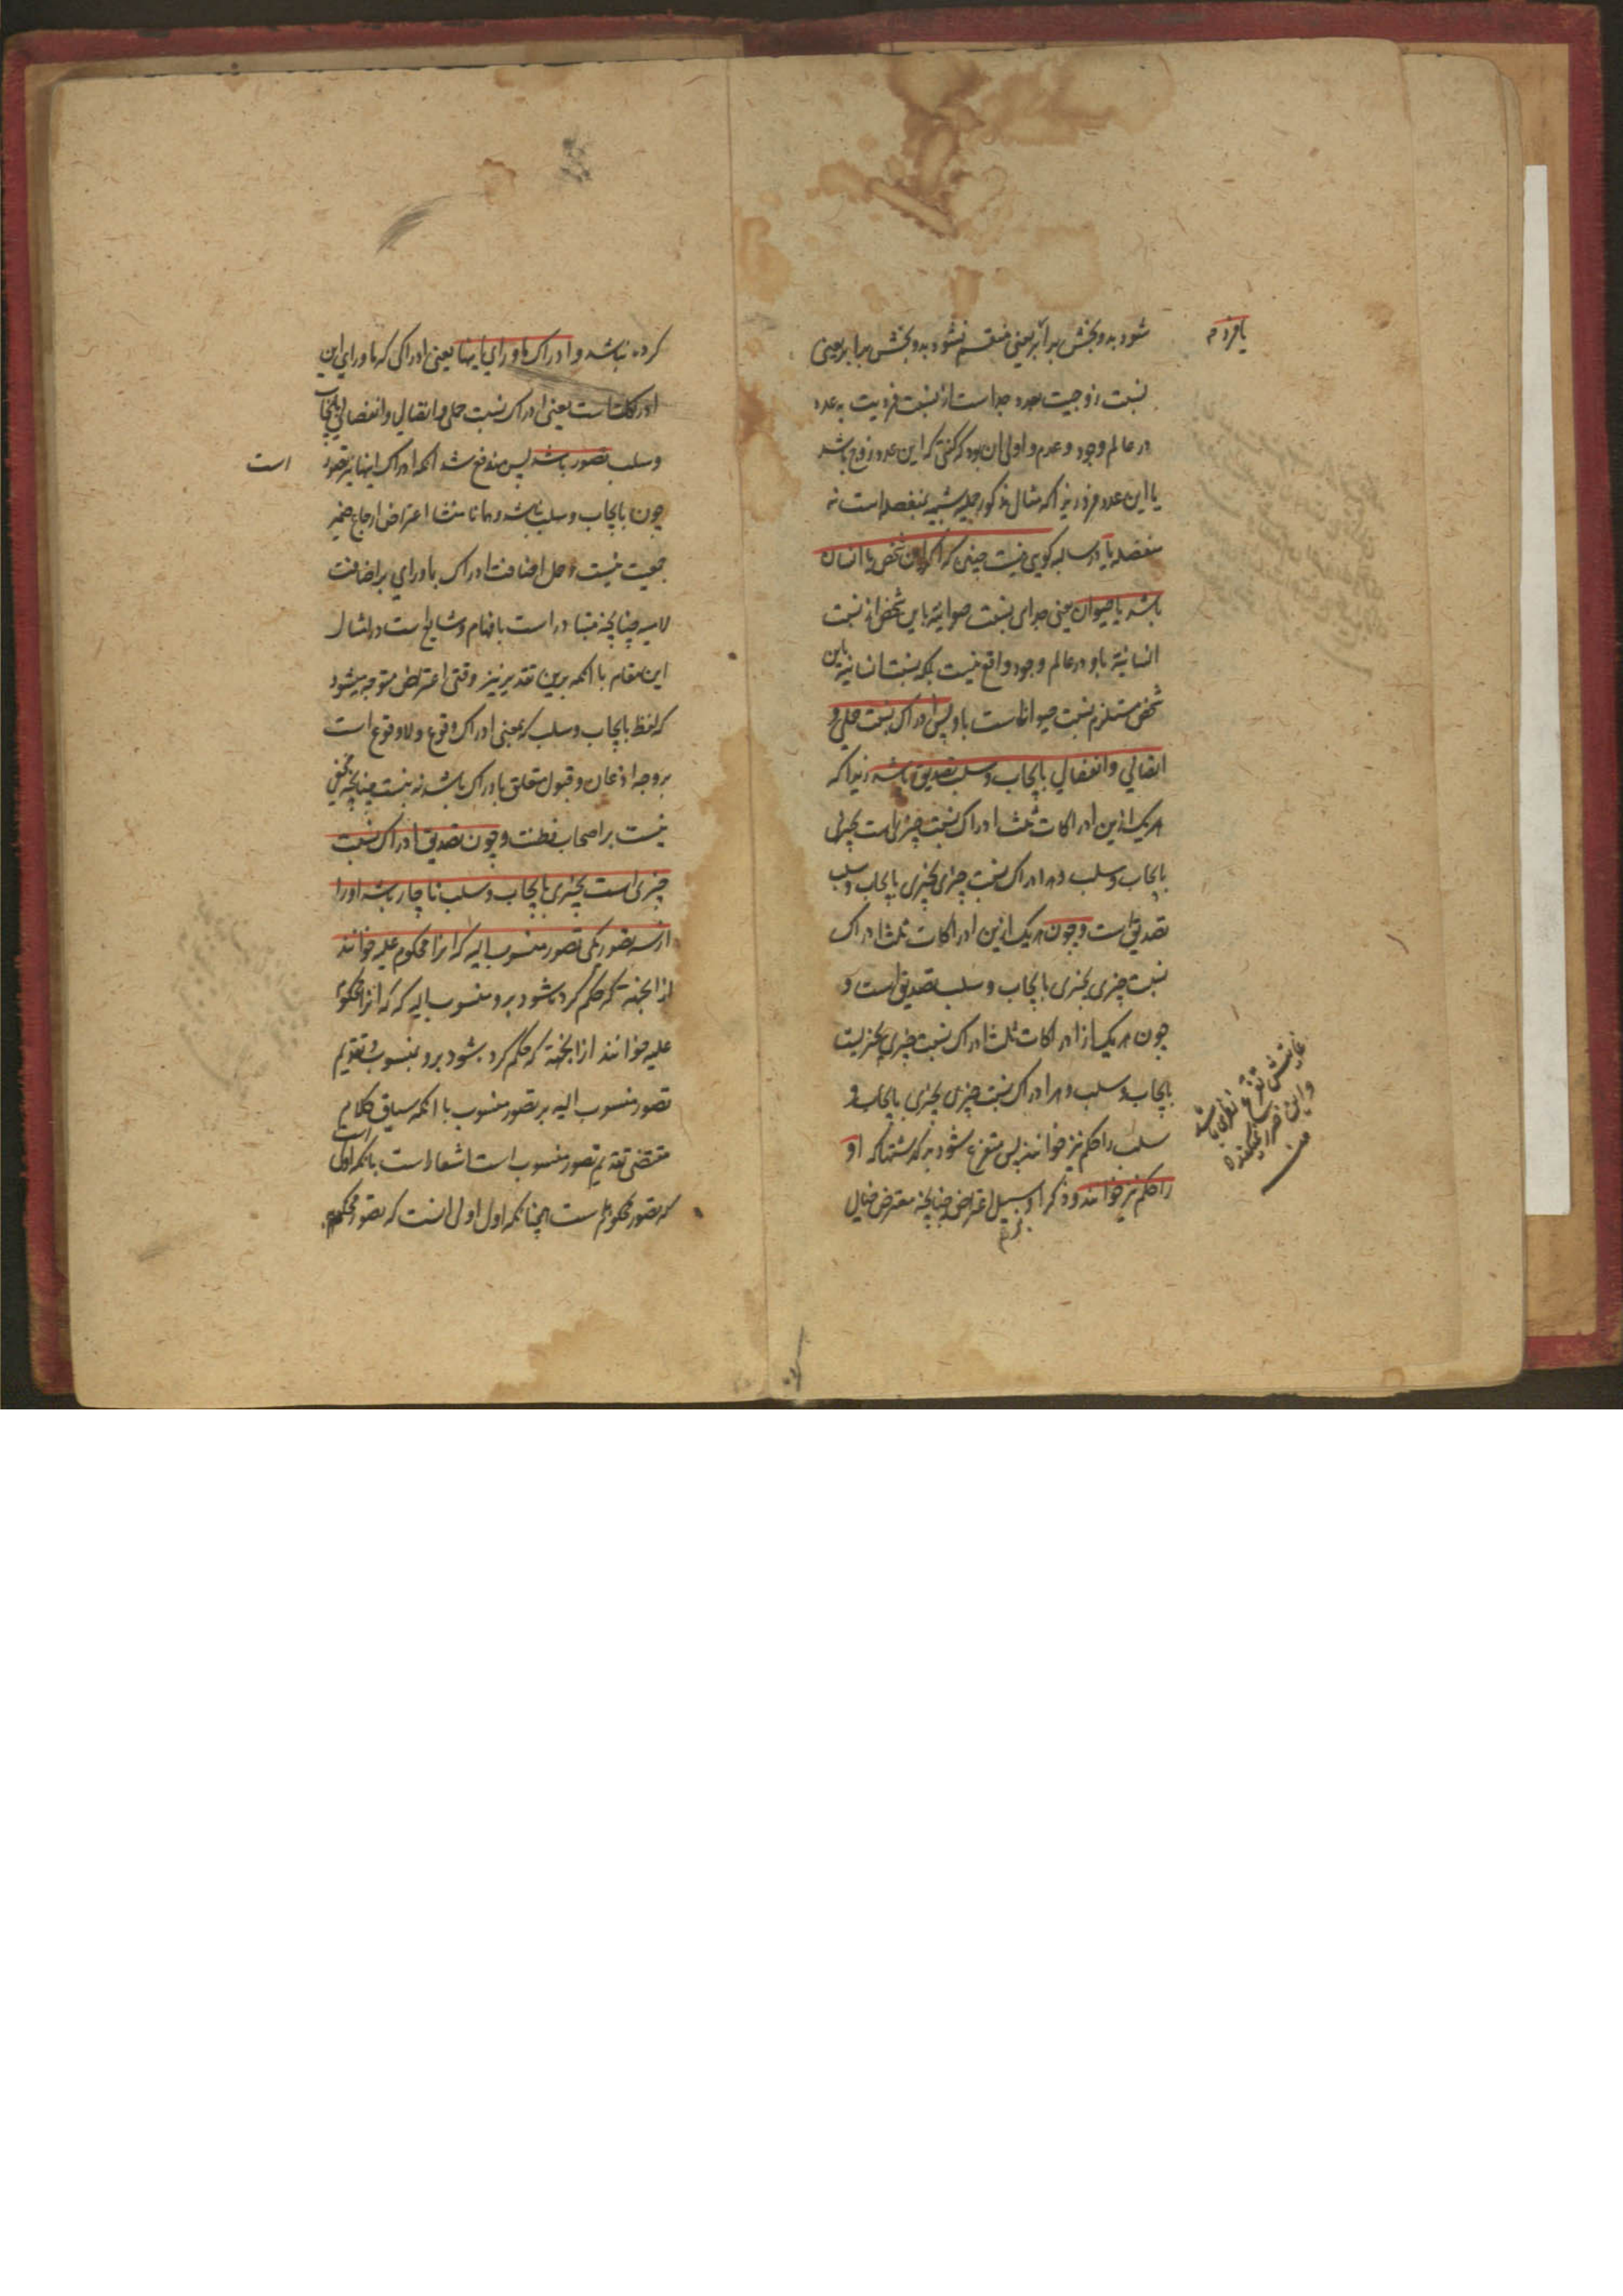 شود بدو بخش برابر یعنی منقسم نشود بدو بخش برابر یعنی
یا فرد م
نسبت زوجیت بعدد جداست از نسبت فردیت به عدد
در عالم وجود و عدم و اولی آن بود که گفتی که این عدد زوج باشد
یا این عدد فرد زیرا که مثال مذکور حملیه شبیه بمنفصله است نه
منفصله یا در سالبه گویی نیست چنین که این شخص یا انسان
باشد یا حیوان یعنی جدای نسبت حیوانیة باین شخص از نسبت
انسانیة باو در عالم وجود واقع نیست بلکه نسبت انسانیة باین
شخص مستلزم نسبت حیوانیت باو پس ادراک نسبت حملی و
اتصالی و انفصالی بایجاب و سلب تصدیق باشد زیرا که
هر یک ازین ادراکات ثلث ادراک نسبت چیزی است بچیزی
بایجاب و سلب و هر ادراک نسبت چیزی بچیزی بایجاب و سلب
تصدیق است و چون هر یک ازین ادراکات ثلث ادراک
نسبت چیزی بچیزی بایجاب و سلب تصدیق است و
چون هر یک از ادراکات ثلث ادراک نسبت چیزی بچیزیست
بایجاب و سلب و هر ادراک نسبت چیزی بچیزی بایجاب و
سلب را حکم نیز خوانند پس متفرع شود بر گذشتها که او
را حکم نیز خوانند و ذکر او بر سبیل اعتراض چنانچه معترض خیال
کرده نباشد و ادراک ماورای اینها یعنی ادراکی که ماورای این
ادراکات است یعنی ادراک نسبت حملی و اتصالی و انفصالی بایجاب
و سلب تصور باشد پس مندفع شد آنکه ادراک اینها نیز تصور
است
چون بایجاب و سلب نباشد و همانا منشا اعتراض ارجاع ضمیر
جمعیت نیست و حمل اضافت ادراک بماورای بر اضافت
لامیه چنانچه متبادر است بافهام و شایع است در امثال
این مقام با آنکه برین تقدیر نیز وقتی اعتراض متوجه میشود
که لفظ بایجاب و سلب که بمعنی ادراک وقوع و لا وقوع است
بر وجه اذعان و قبول متعلق بادراک باشد نه بنسبت چنانچه مخفی
نیست بر اصحاب فطنت و چون تصدیق ادراک نسبت
چیزی است بچیزی بایجاب و سلب ناچار باشد او را
از سه تصور یکی تصور منسوب الیه که آنرا محکوم علیه خوانند
از آنجهة که حکم کرده شود برو منسوب الیه که که آنرا محکوم
علیه خوانند از آنجهة که حکم کرده شود برو بمنسوب و تقدیم
تصور منسوب الیه بر تصور منسوب با آنکه سیاق کلام
مقتضی تقدیم تصور منسوب است اشعار است بآنکه اولی است
که تصور محکوم علیه همچنانکه اول اول آنست که تصور محکوم